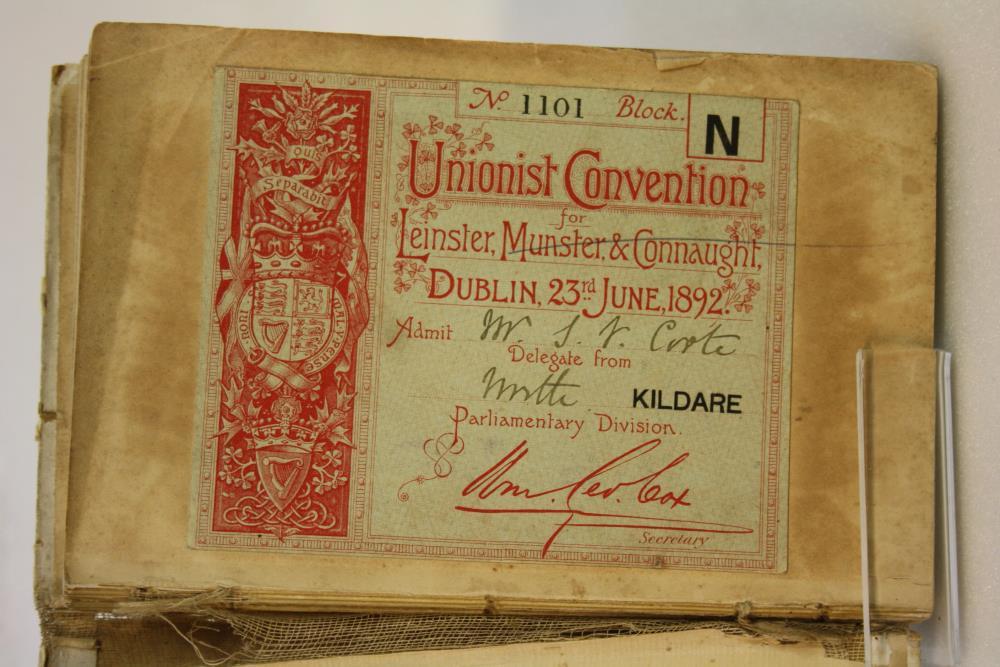 No 1101 Block. N
Unionist Convention
for
Leinster, Munster, & Connaught,
DUBLIN, 23rd JUNE, 1892.
Admit Mr. S. V. Coote
Delegate from
North KILDARE
Parliamentary Division.
Wm. Geo. Cox
Secretary
QUIS
Separabit
HONI MAL·Y·PENSE